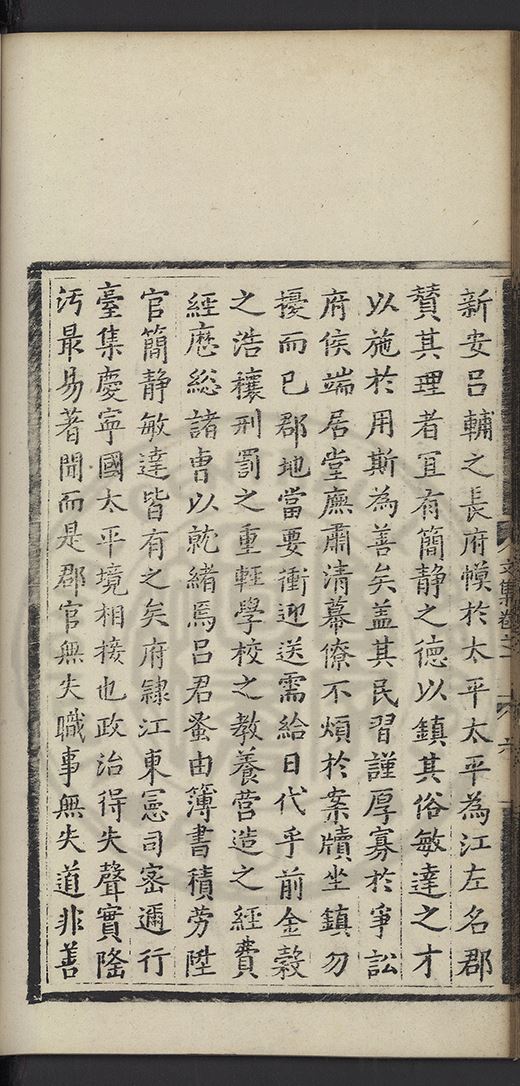 新安呂輔之長府幙於太平太平為江左名郡
賛其理者冝有簡静之德以鎮其俗敏達之才
以施於用斯為善矣盖其民習謹厚寡於爭訟
府侯端居堂廡肅清幕僚不煩於案牘坐鎮勿
擾而已郡地當要衝迎送需給日代乎前金榖
之浩穰刑罰之重輕學校之教養营造之經費
經厯緫諸曺以就緒焉吕君蚤由簿書積劳陞
官簡静敏達皆有之矣府隸江東憲司宻邇行
臺集慶寧國太平境相接也政治得失聲實隆
汚最易著聞而是郡官無失職事無失道非善